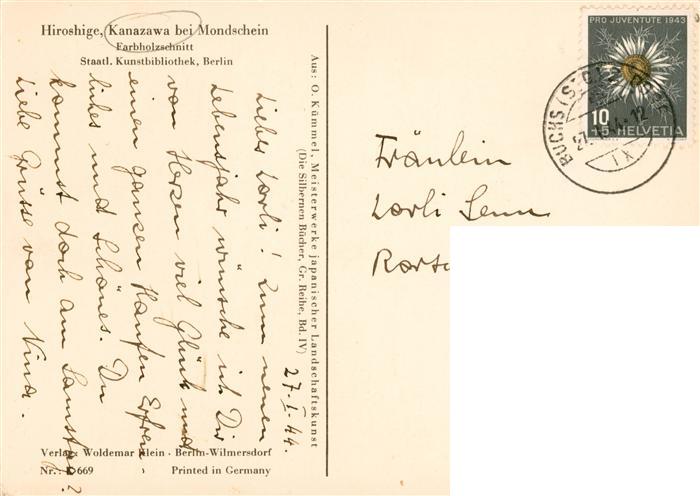 Hiroshige, Kanazawa bei Mondschein
Farbholzschnitt
Staatl. Kunstbibliothek, Berlin
27. I. 44.
Liebes Lorli! Zum neuen
Lebensjahr wünsche ich Dir
von Herzen viel Glück und
einen ganzen Haufen Erfreu-
liches und Schönes. Du
kommst doch am Samstag?
Liebe Grüsse von Nina.
Verlag: Woldemar Klein · Berlin-Wilmersdorf
Nr.: 669
Printed in Germany
Aus: O. Kümmel, Meisterwerke japanischer Landschaftskunst
(Die Silbernen Bücher, Gr. Reihe, Bd. IV)
PRO JUVENTUTE 1943
10
+5 HELVETIA
BUCHS (ST.G
IX
Fräulein
Lorli Senn
Rorsc